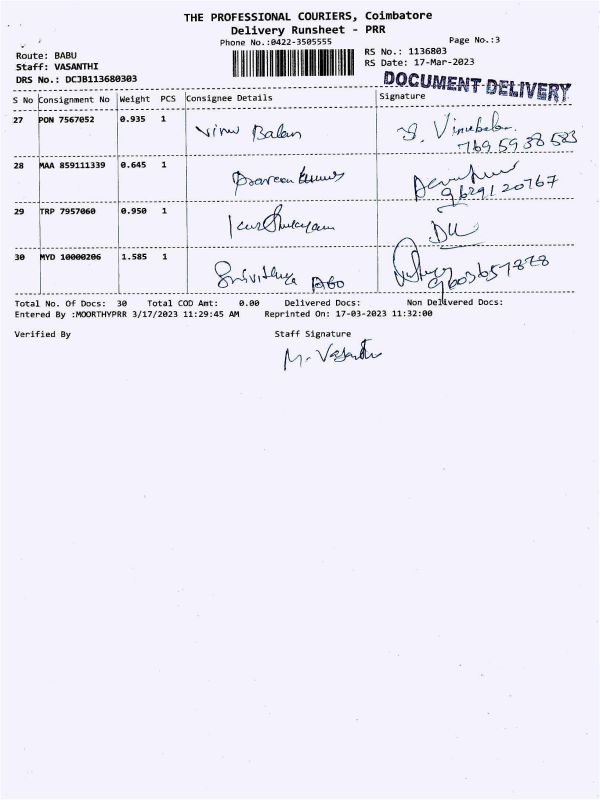 THE PROFESSIONAL COURIERS, Coimbatore
Delivery Runsheet - PRR
Phone No.:0422-3505555 Page No.:3
Route: BABU RS No.: 1136803
Staff: VASANTHI RS Date: 17-Mar-2023
DRS No.: DCJB113680303
DOCUMENT DELIVERY
S No Consignment No Weight PCS Consignee Details Signature
27 PON 7567052 0.935 1 Vinu Balan
28 MAA 859111339 0.645 1 9629120767
29 TRP 7957060 0.950 1
30 MYD 10000206 1.585 1 9603657878
Total No. Of Docs: 30 Total COD Amt: 0.00 Delivered Docs: Non Delivered Docs:
Entered By :MOORTHYPRR 3/17/2023 11:29:45 AM Reprinted On: 17-03-2023 11:32:00
Verified By Staff Signature
M. Vasanthi